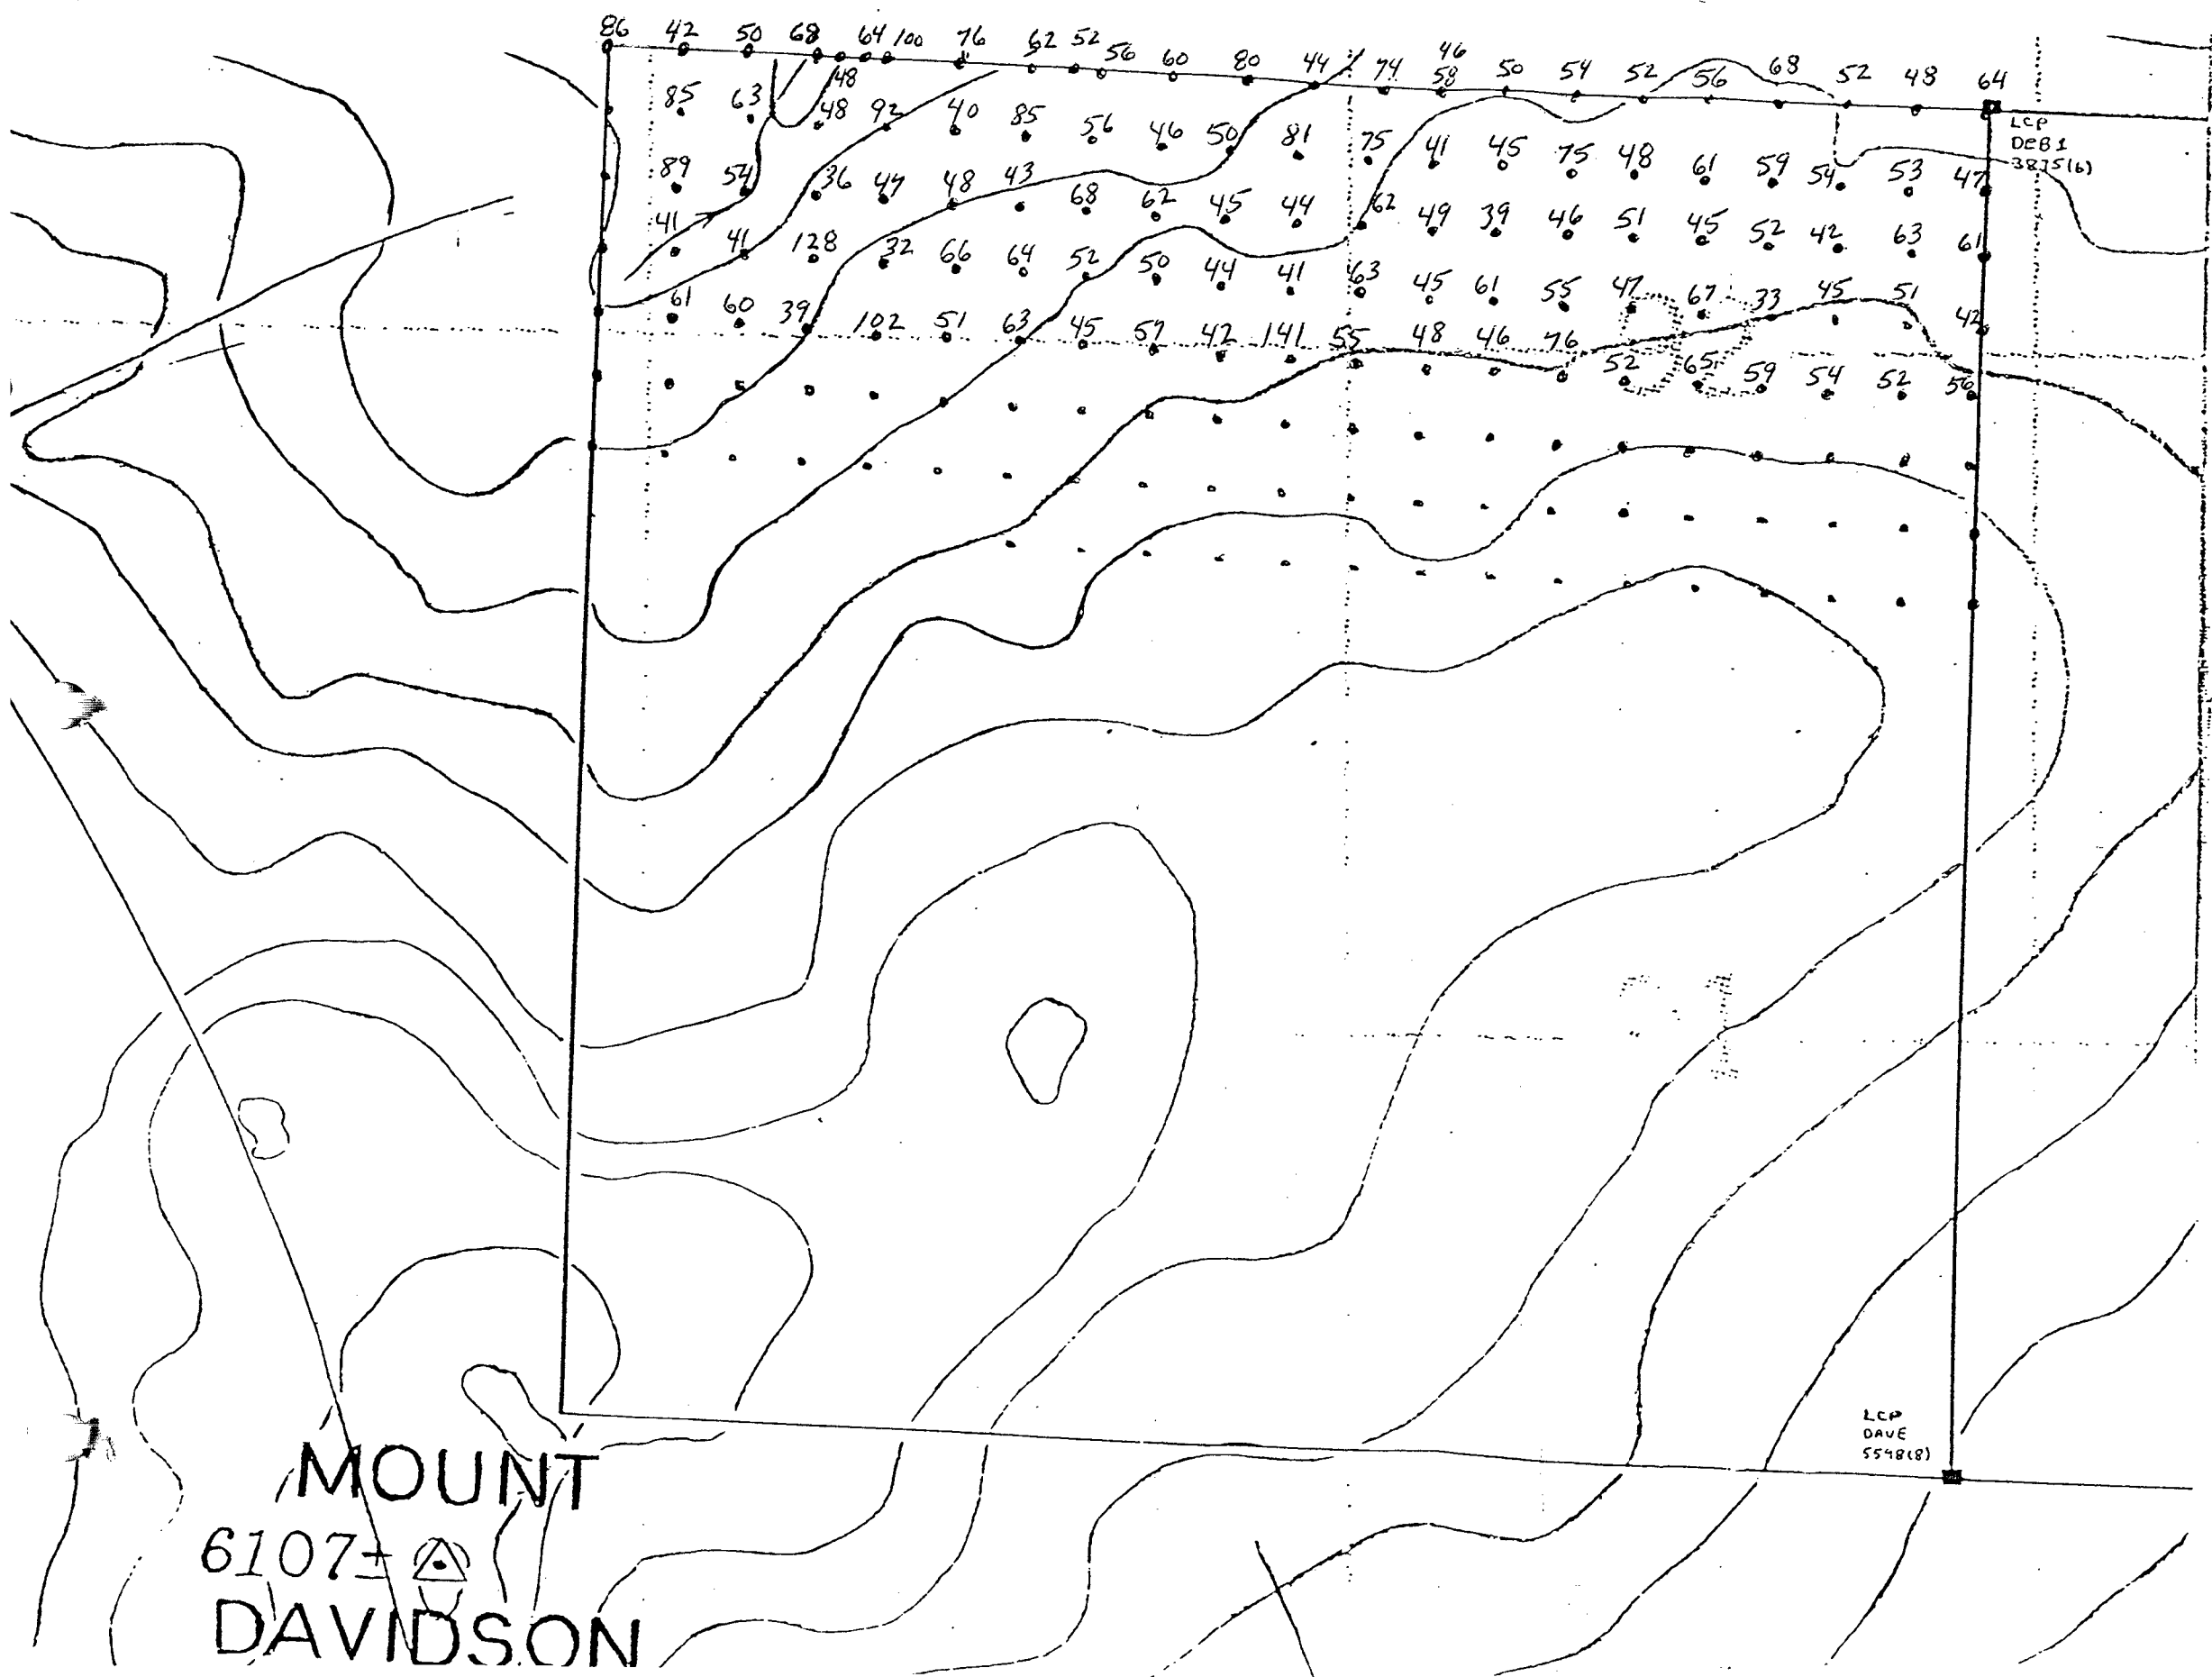 86 42 50 68 64 100 76 62 52 56 60 80 44 74 46 50 54 52 56 68 52 48 64
58
48
85 63 48 92 40 85 56 46 50 81 75 41 45 75 48 61 59 54 53 47
LCP
DEB1
3875(6)
89 54 36 47 48 43 68 62 45 44 62 49 39 46 51 45 52 42 63 61
41 41 128 32 66 64 52 50 44 41 63 45 61 55 47 67 33 45 51 42
61 60 39 102 51 63 45 57 42 141 55 48 46 76 52 65 59 54 52 56
LCP
DAVE
5548(8)
MOUNT
6107±
DAVIDSON